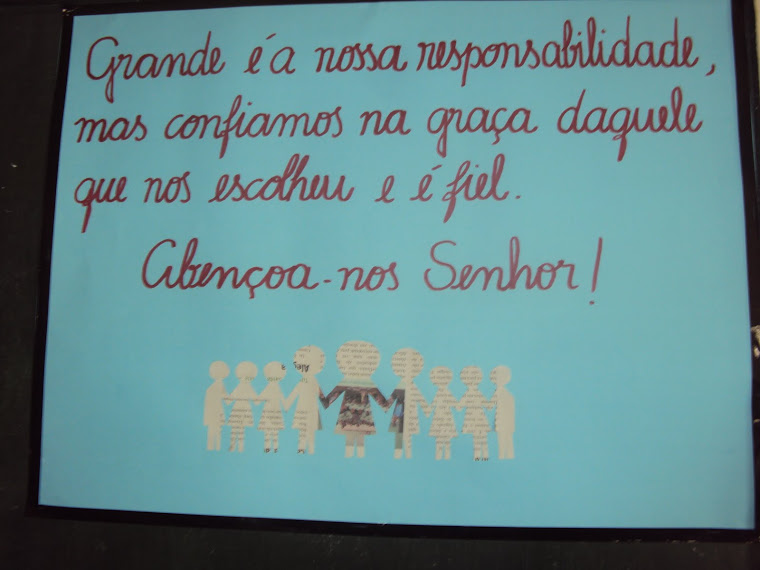 Grande é a nossa responsabilidade,
mas confiamos na graça daquele
que nos escolheu e é fiel.
Abençoa-nos Senhor!